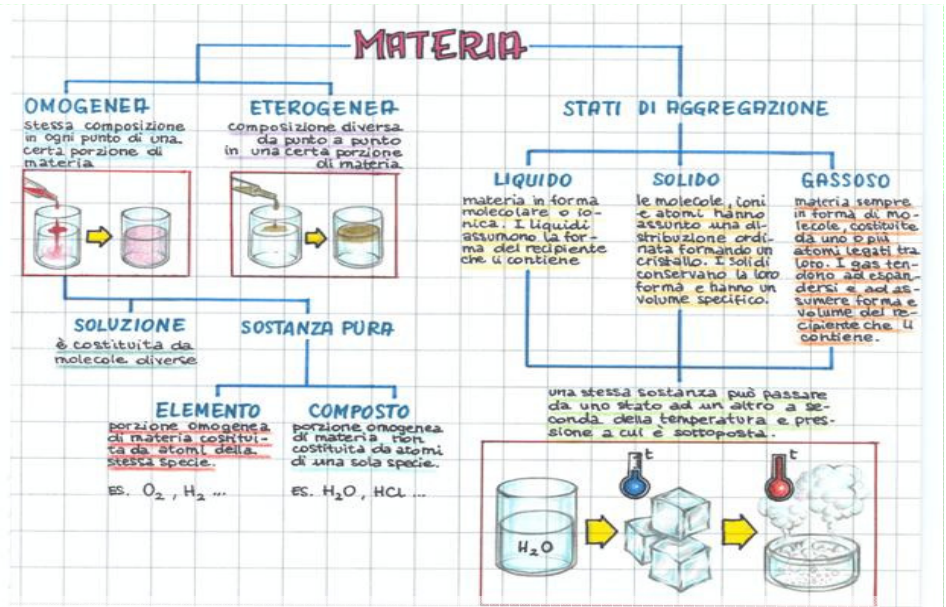 MATERIA
OMOGENEA
stessa composizione
in ogni punto di una
certa porzione di
materia
ETEROGENEA
composizione diversa
da punto a punto
in una certa porzione
di materia
SOLUZIONE
è costituita da
molecole diverse
SOSTANZA PURA
ELEMENTO
porzione omogenea
di materia costitui-
ta da atomi della
stessa specie.
ES. O₂, H₂ ...
COMPOSTO
porzione omogenea
di materia non
costituita da atomi
di una sola specie.
ES. H₂O, HCl ...
STATI DI AGGREGAZIONE
LIQUIDO
materia in forma
molecolare o io-
nica. I liquidi
assumono la for-
ma del recipiente
che li contiene
SOLIDO
le molecole, ioni
e atomi hanno
assunto una di-
stribuzione ordi-
nata formando un
cristallo. I solidi
conservano la loro
forma e hanno un
volume specifico.
GASSOSO
materia sempre
in forma di mo-
lecole, costituite
da uno o più
atomi legati tra
loro. I gas ten-
dono ad espan-
dersi e ad as-
sumere forma e
volume del re-
cipiente che li
contiene.
una stessa sostanza può passare
da uno stato ad un altro a se-
conda della temperatura e pres-
sione a cui è sottoposta.
t
t
H₂O